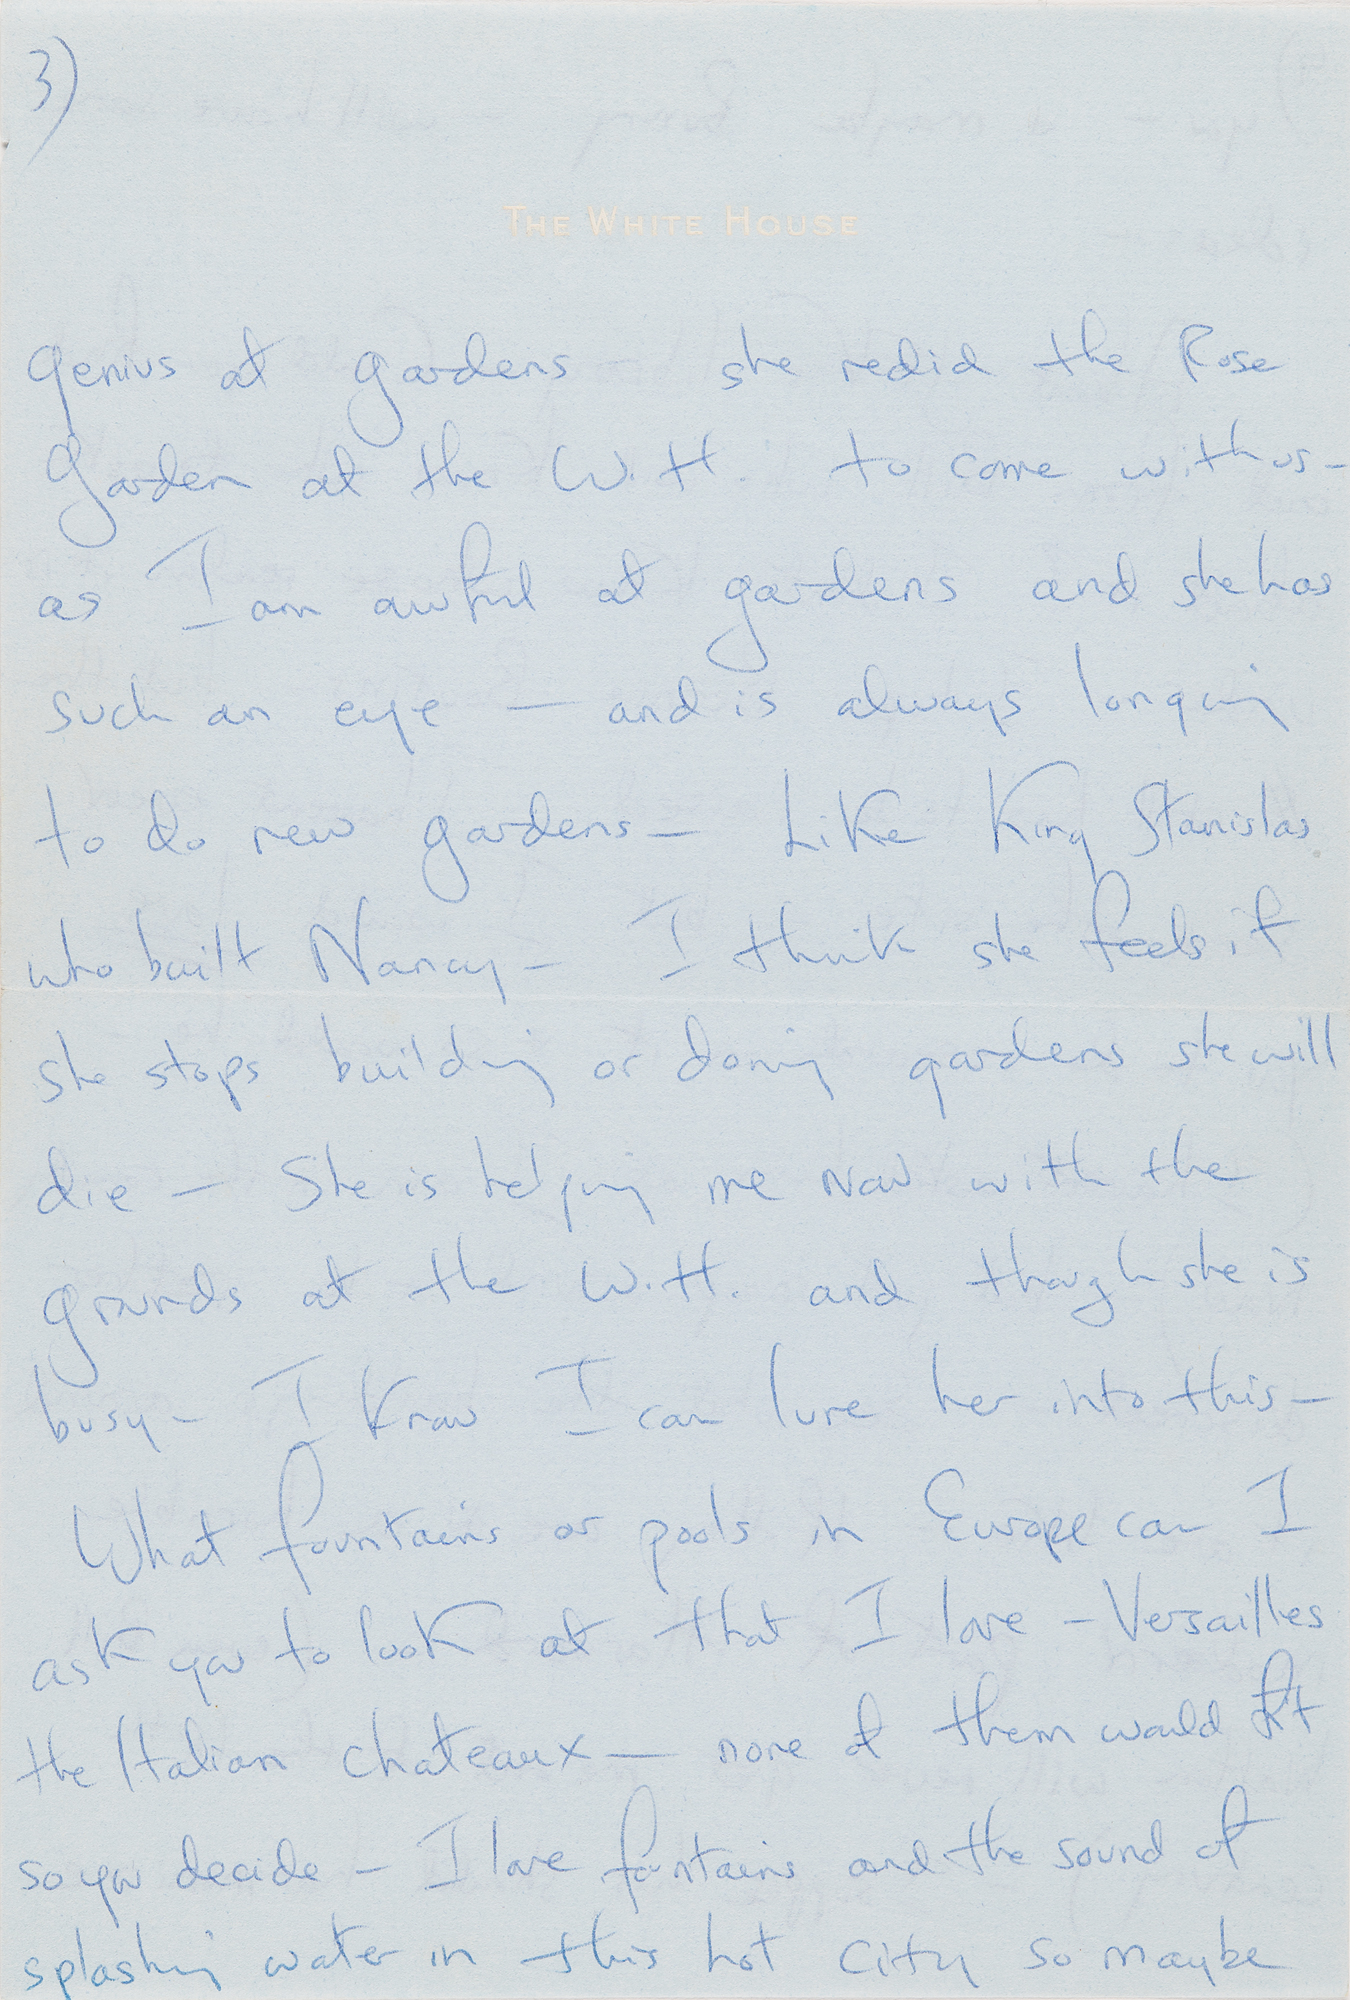 3)
THE WHITE HOUSE
genius at gardens — she redid the Rose
Garden at the W.H. to come with us —
as I am awful at gardens and she has
such an eye — and is always longing
to do new gardens — Like King Stanislas
who built Nancy — I think she feels if
she stops building or doing gardens she will
die — She is helping me now with the
grounds at the W.H. and though she is
busy — I know I can lure her into this —
What fountains or pools in Europe can I
ask you to look at that I love — Versailles
the Italian chateaux — none of them would fit
so you decide — I love fountains and the sound of
splashing water in this hot city so maybe